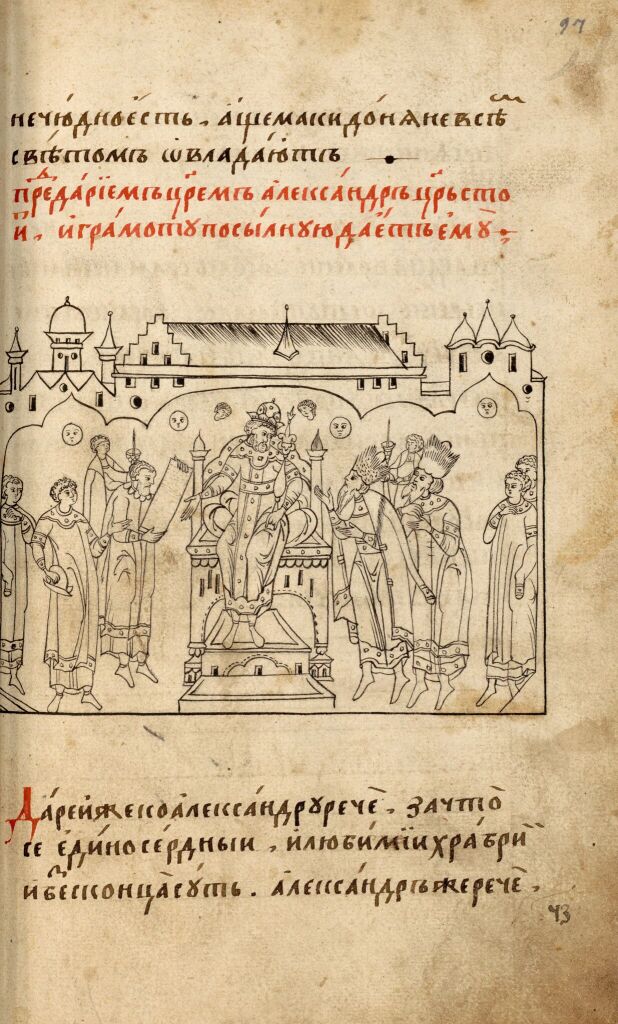 97
не чю́дно е́сть. а҆ще макидо́няне всѣ̑м
свѣ́томъ ѡ҆влада́ютъ
пред̾ да́рїемъ цр҃емъ а҆леѯа́ндръ цр҃ь сто
и҆т. и҆ гра́моту посы́лную дае́тъ е҆мꙋ̀.
Да́рей же ко а҆леѯа́ндру речѐ. за что̀
се е҆диносе́рдныи. и҆ люби́мїи и҆ хра́брїи
и҆ без̾ конца̀ сꙋ́ть. а҆леѯа́ндръ же речѐ.
43